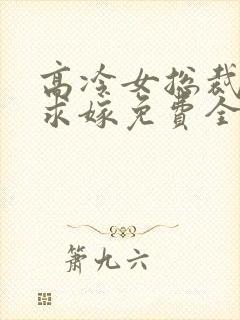 高冷女总裁
求嫁免費全
箫九六